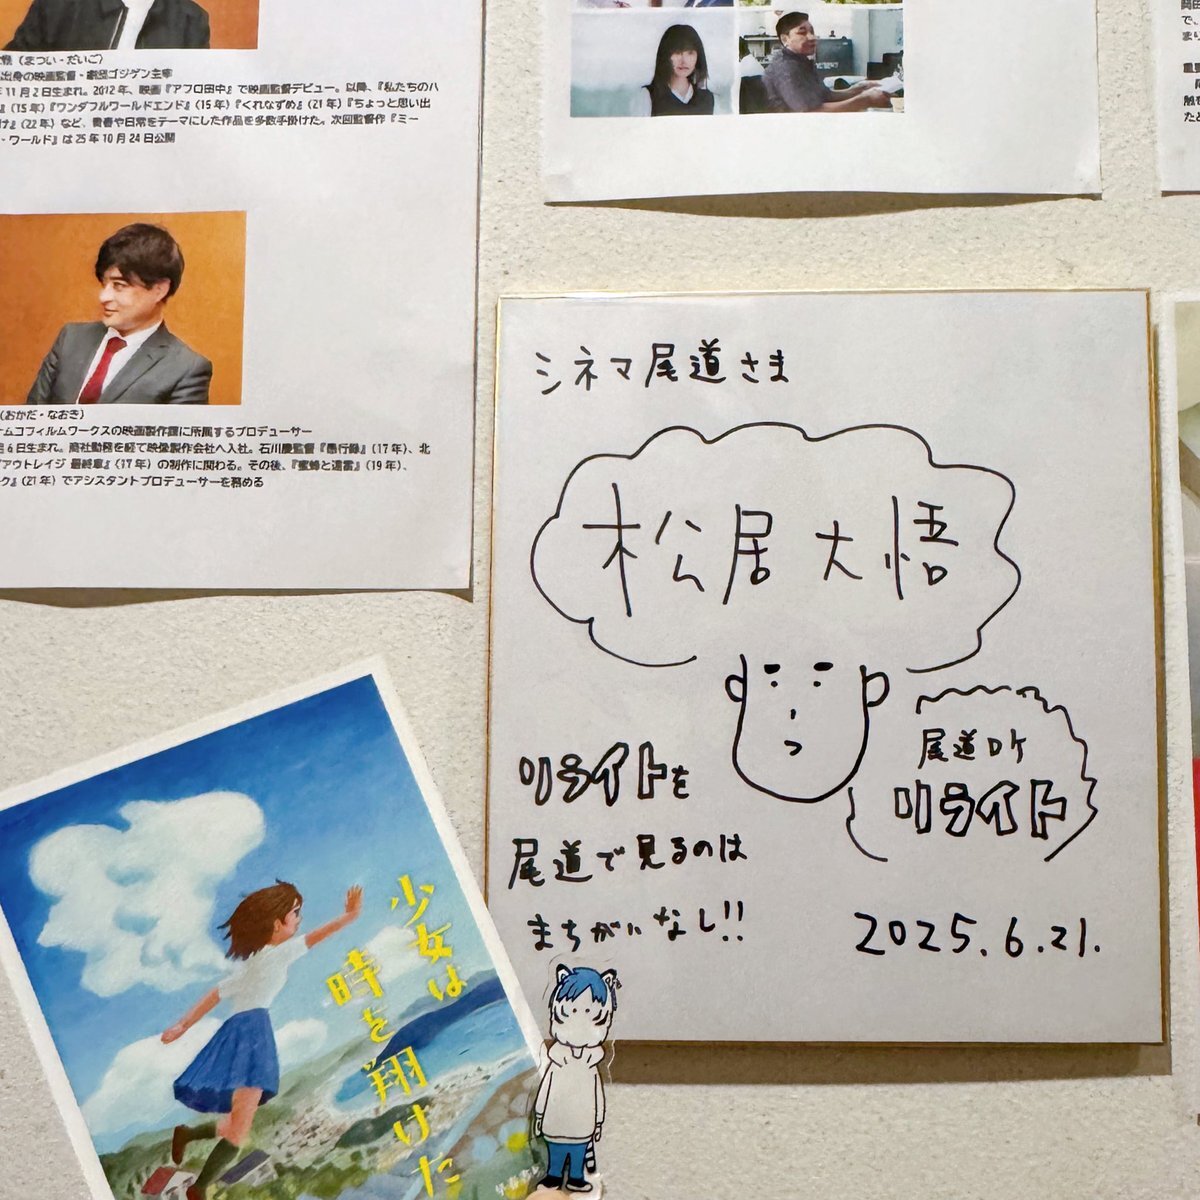 （まつい・だいご）
出身の映画監督・劇団ゴジゲン主宰
年11月2日生まれ。2012年、映画『アフロ田中』で映画監督デビュー。以降、『私たちのハ
』（15年）『ワンダフルワールドエンド』（15年）『くれなずめ』（21年）『ちょっと思い出
け』（22年）など、青春や日常をテーマにした作品を多数手掛けた。次回監督作『ミー
・ワールド』は25年10月24日公開
（おかだ・なおき）
ナムコフィルムワークスの映画製作課に所属するプロデューサー
月6日生まれ。商社勤務を経て映像製作会社へ入社。石川慶監督『愚行録』（17年）、北
『アウトレイジ 最終章』（17年）の制作に関わる。その後、『蜜蜂と遠雷』（19年）、
ク』（21年）でアシスタントプロデューサーを務める
シネマ尾道さま
松居大悟
尾道ロケ
リライト
リライトを
尾道で見るのは
まちがいなし!!
2025.6.21.
少女は
時を翔けた